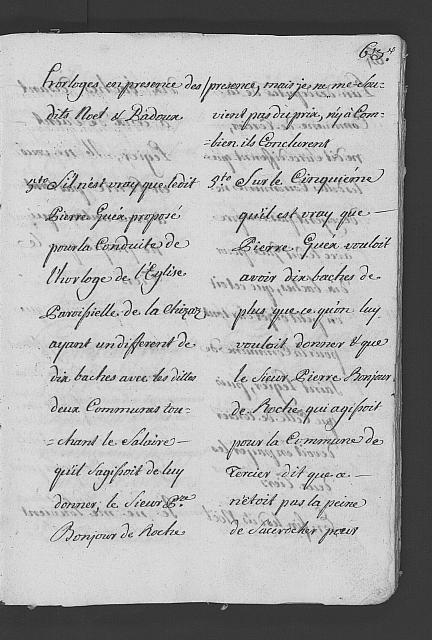 63.
horloges en presence des
dits Roet & Badoux
5.to S'il n'est vray que ledit
Pierre Guex proposé
pour la Conduite de
l'horloge de l'Eglise
Paroissielle de la
ayant un different de
dix baches avec les dittes
deux Communes tou-
=chant le Salaire —
qu'il s'agissoit de luy
donner, le Sieur P.re
Bonjour de Roche
presence, mais je ne me Sou-
vient pas du prix, n'y à Com-
=bien ils Conclurent
5.to Sur le Cinquieme
qu'il est vray que —
Pierre Guex vouloit
avoir dix baches de
plus que ce qu'on luy
vouloit donner & que
le Sieur Pierre Bonjour
de Roche qui agissoit
pour la Commune de
dit que a —
n'etoit pas la peine
de S'accrocher pour